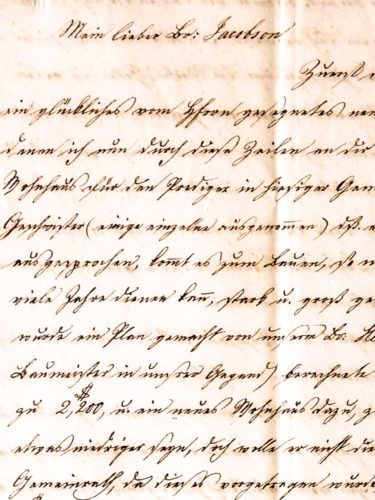 Mein lieber Br: Jacobson
Zuerst
ein glückliches vom HErrn gesegnetes neu
denen ich nun durch diese Zeilen an dir
Wohnhaus für den Prediger in hiesiger Gem
Geschwister (einige einzelne ausgenommen) dß.
ausgesprochen, kommt es zum Bauen, so
viele Jahre dienen kann, stark u. groß ge
wurde ein Plan gemacht von unserm Br: He
Baumeister in unsrer Gegend) berechnete
zu $2,200, u. ein neues Wohnhaus dazu,
etwas niedriger seyn, doch wolle er nicht die
Gemeinrath, da dieses vorgetragen wurde